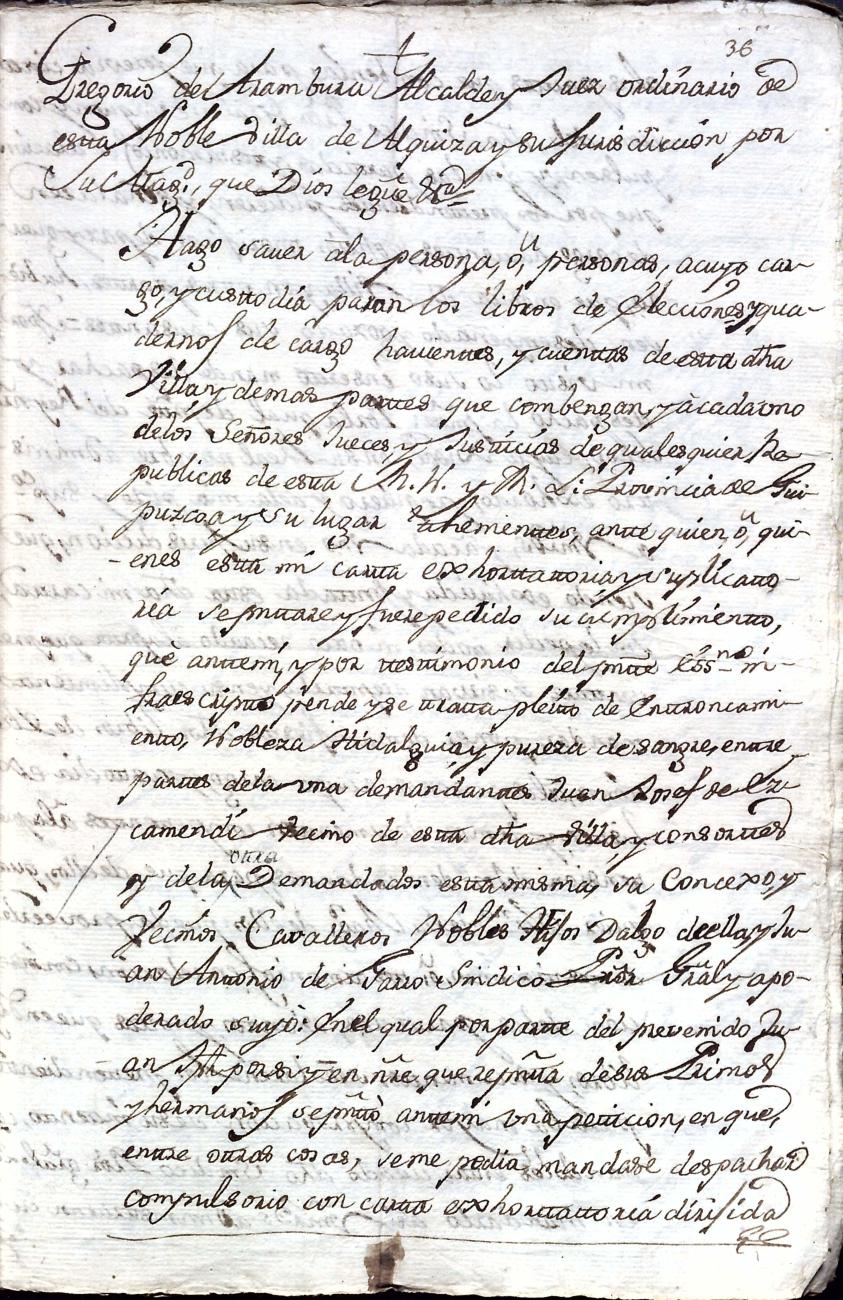 36
Gregorio de Aramburu Alcalde y Juez ordinario de
esta Noble Villa de Alquiza y su Jurisdiccion por
Su Magd., que Dios legue &ra
Hago saver ala persona, ó, personas, acuyo car-
go, y custodia paran los libros de Elecciones y qua-
dernos de cargo havientes, y cuentas de esta dha
Villa y demas partes que combengan, y à cada uno
delos Señores Jueces, y Justicias de qualesquier Re-
publicas de esta M. N. y M. L. Provincia de Gui-
puzcoa y su lugar thenientes, ante quien, ó, qui-
-enes esta mi carta exhortatoria y suplicato-
ria se pntare y fuere pedido su cumplimiento,
què antemi, y por testimonio del pnte Essno in-
fraescripto pende y se trata pleito de Entroncami-
ento, Nobleza Hidalguia, y pureza de sangre, entre
partes dela una demandantes Juan Josef de Ez-
camendi Vecino de esta dha Villa, y consortes
y dela otra Demandados esta misma, su Concexo, y
Vecinos Cavalleros Nobles Hijos Dalgo de ella, y Ju-
an Antonio de Garro Sindico Pror Gral y apo-
derado suyo: Enel qual por parte del prevenido Ju-
an Jph por si y en nre que repnta de sus Primos
y hermanos se pntò antemi una peticion, en que,
entre otras cosas, se me pedia mandase despachar
compulsorio con carta exhortatoria dirijida